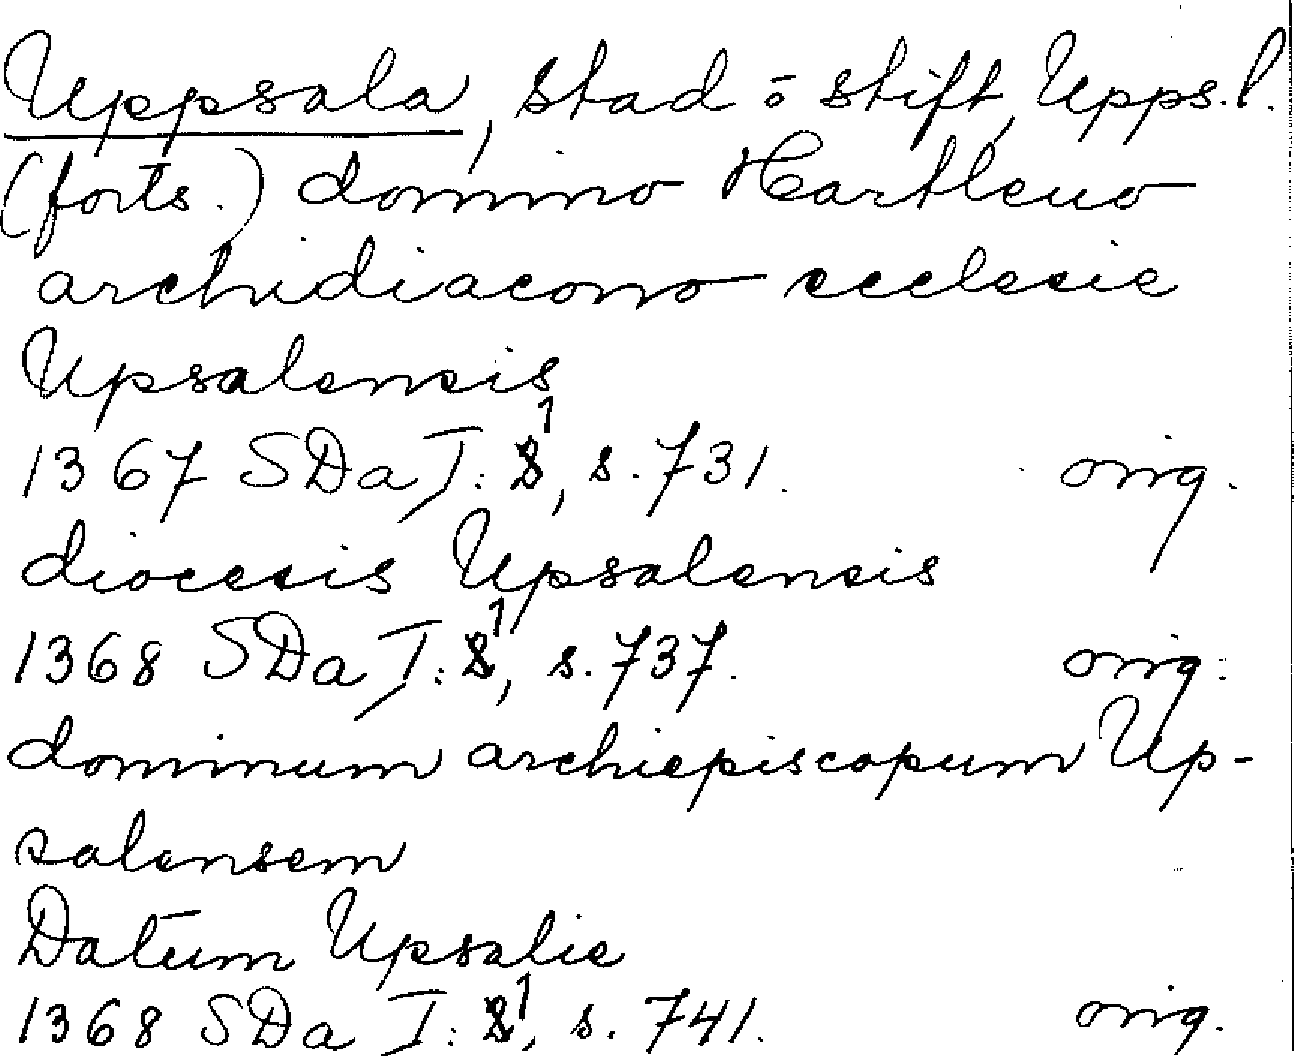 Uppsala, stad o stift, Upps. l.
(forts.) domino Hartleuo
archidiacono ecclesie
Upsalensis
1367 SDa I: 1, s. 731. orig.
diocesis Upsalensis
1368 SDa I: 1, s. 737. orig.
dominum archiepiscopum Up-
salensem
Datum Upsalie
1368 SDa I: 1, s. 741. orig.